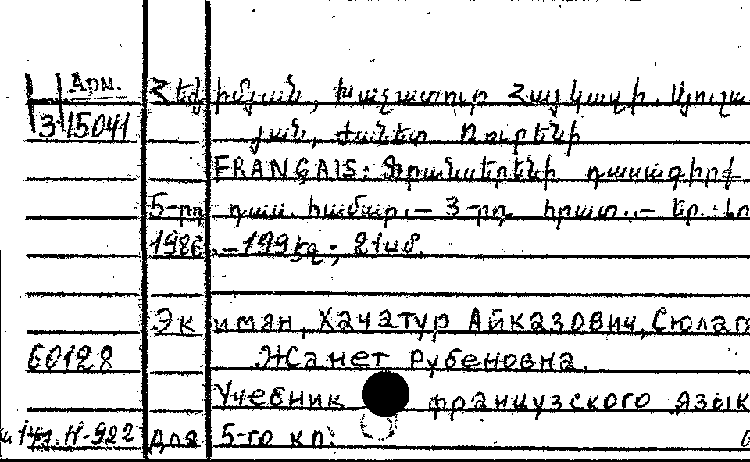 Арм.
Հեքիմյան, Խաչատուր Հայկազի. Սյուլա
3 15041 յան, Ժանետ Ռուբենի
FRANÇAIS: Ֆրանսերենի դասագիրք
5-րդ դաս. համար.— 3-րդ հրատ.— Եր.:
1986.—199էջ; 21սմ.
Экиман, Хачатур Айказович, Сюлаг
60128 Жанет Рубеновна.
Учебник французского язык
H-922 для 5-го кл.